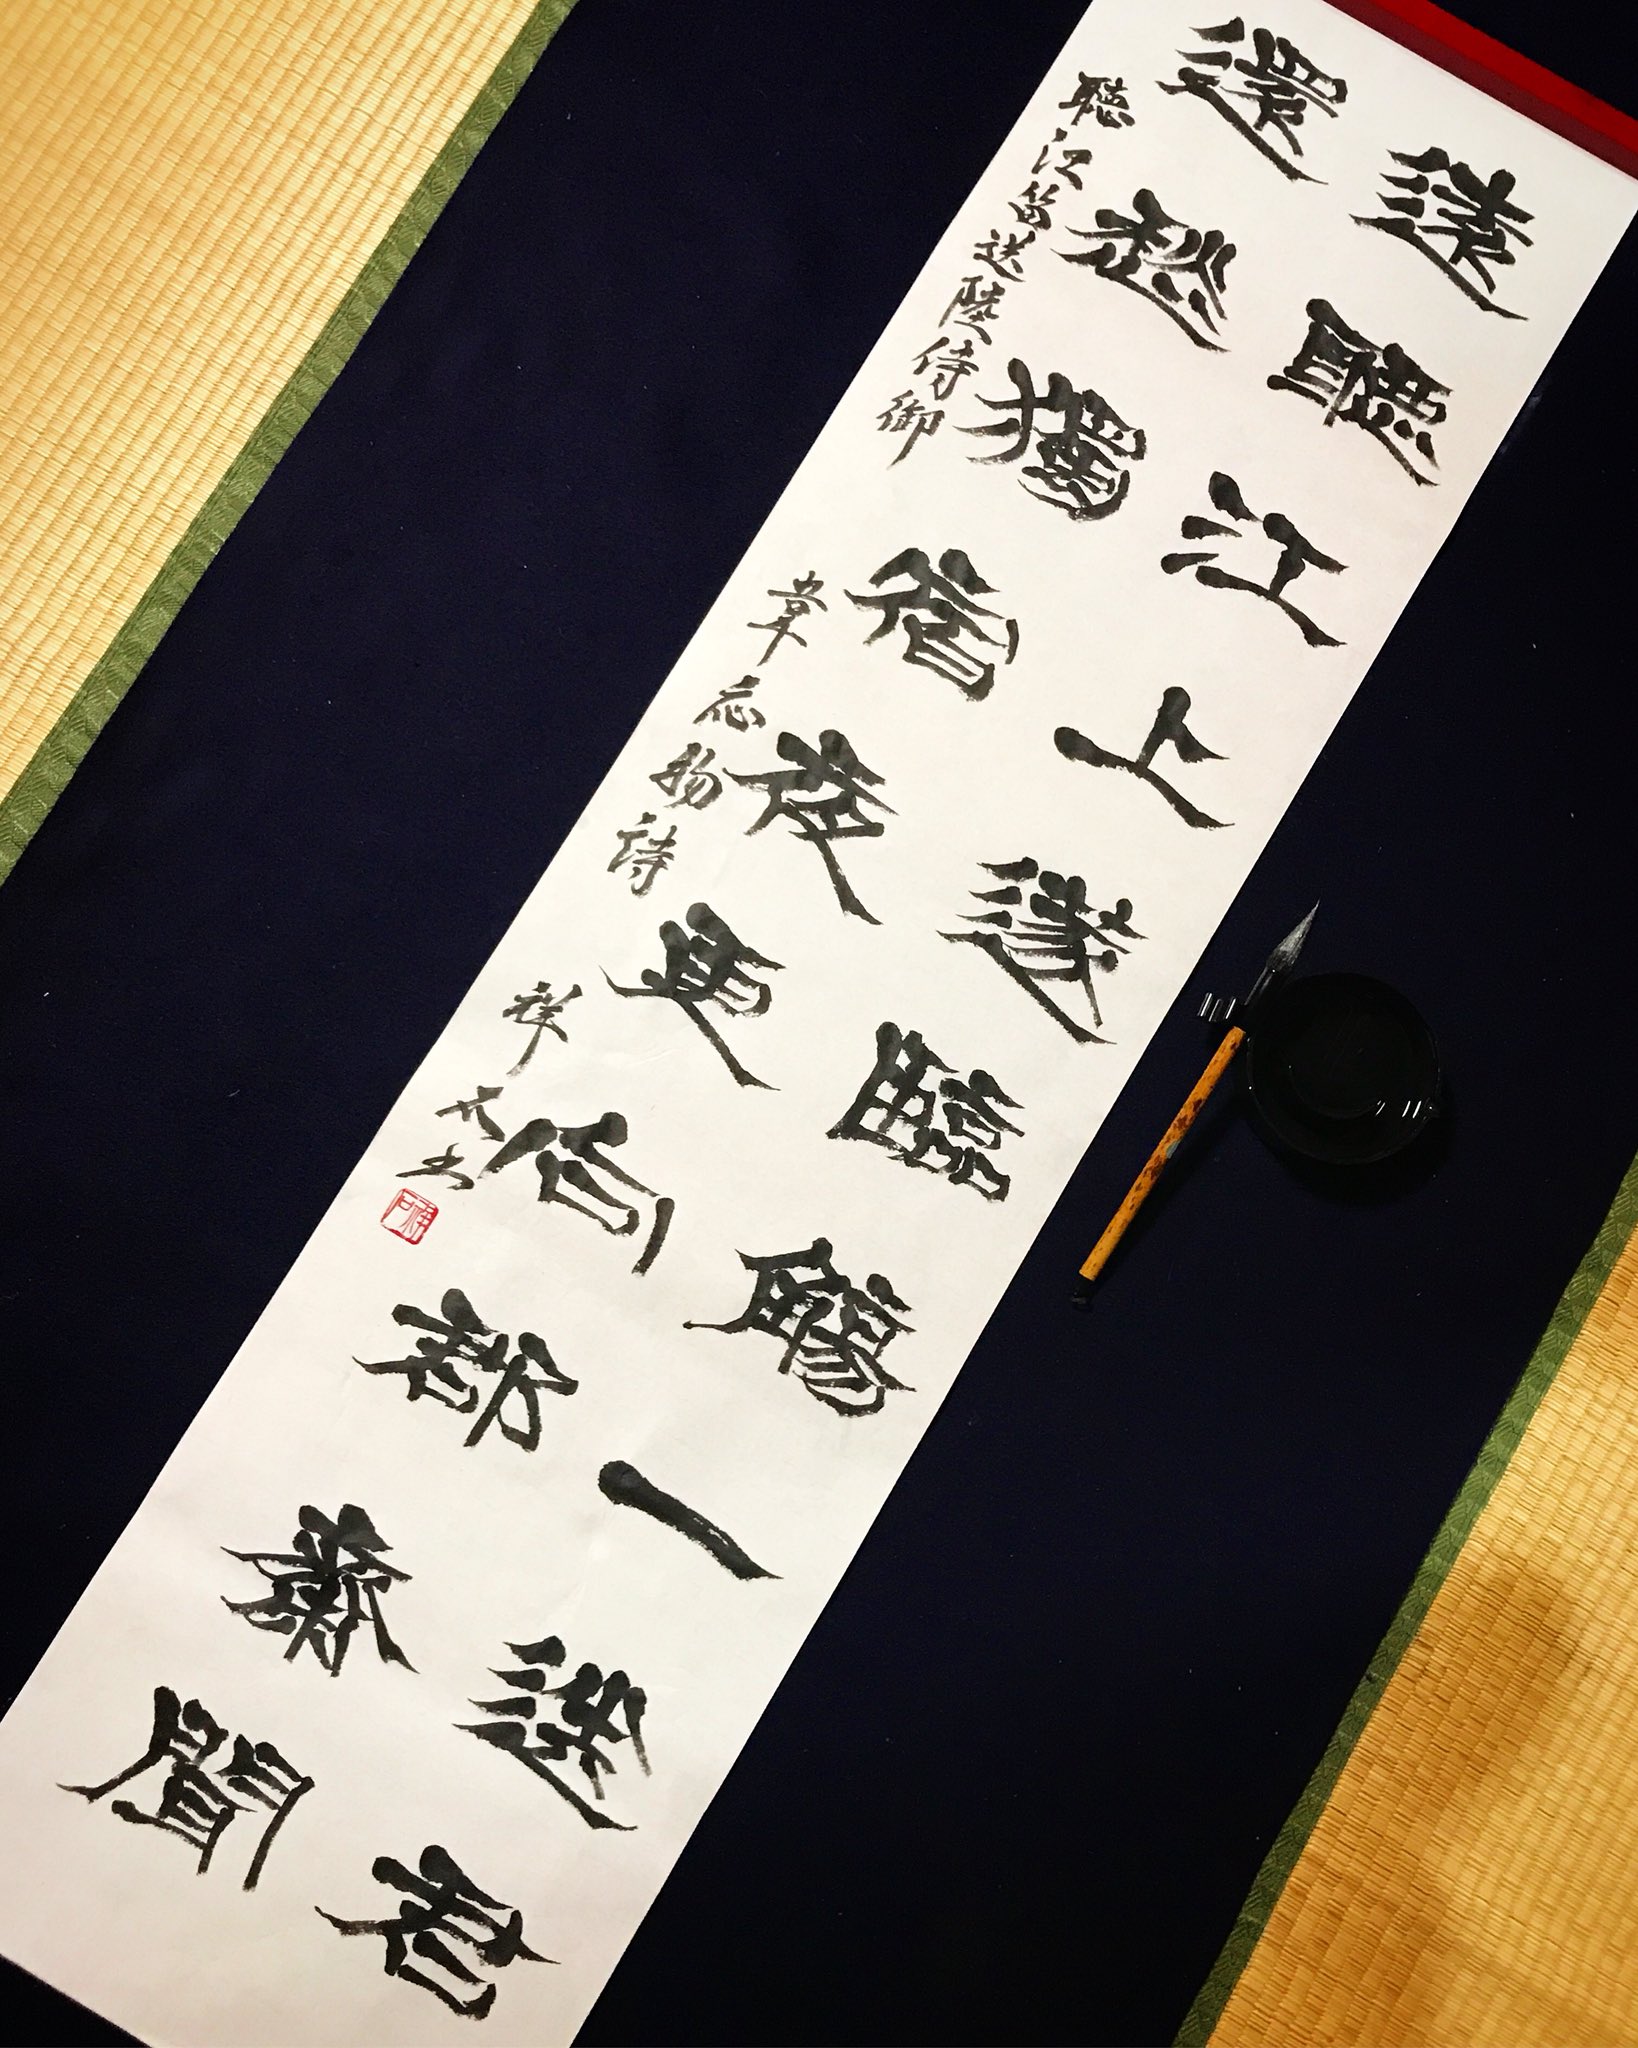 遠聽江上遂臨觴一送君
還愁獨宿夜更向郡齋聞
聴江笛送陸侍御 韋応物詩 祥